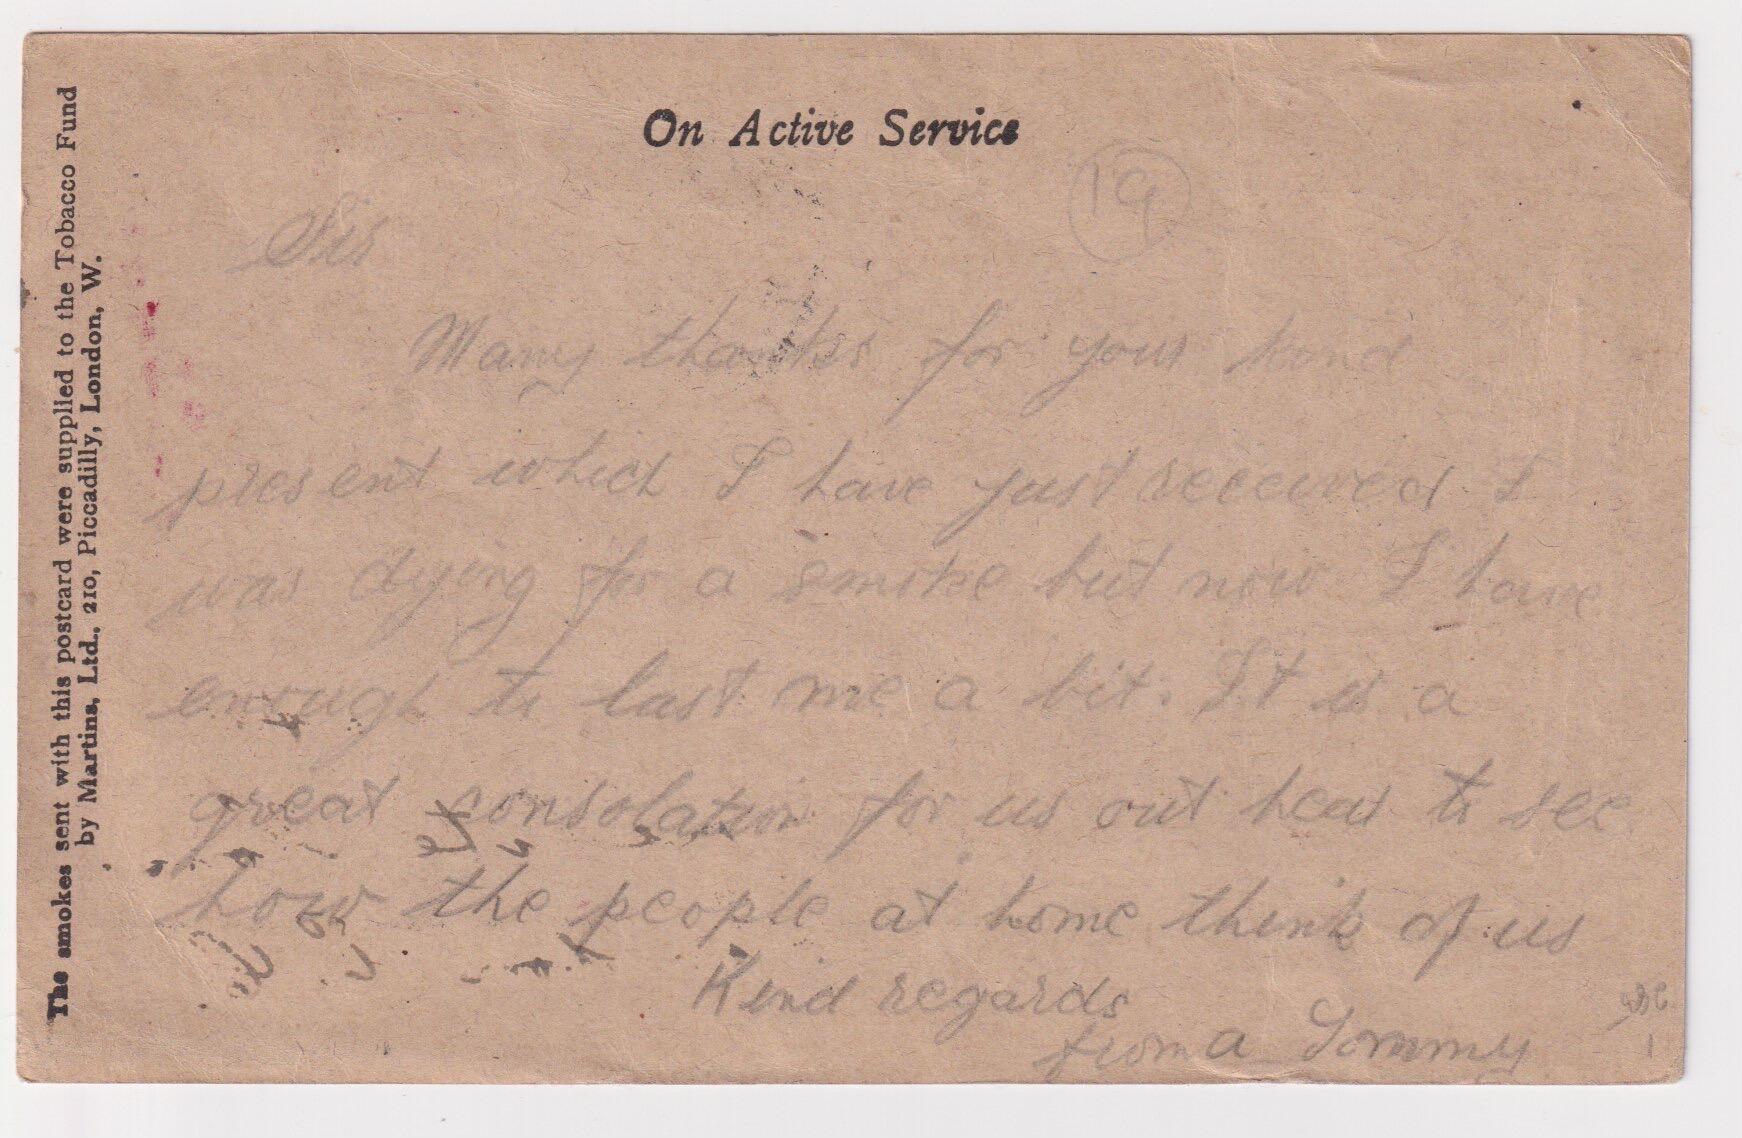 On Active Service
19
Sir
Many thanks for your kind
present which I have just received I
was dying for a smoke but now I have
enough to last me a bit. It is a
great consolation for us out hear to see
how the people at home think of us
Kind regards
from a Tommy
The smokes sent with this postcard were supplied to the Tobacco Fund
by Martins, Ltd., 210, Piccadilly, London, W.